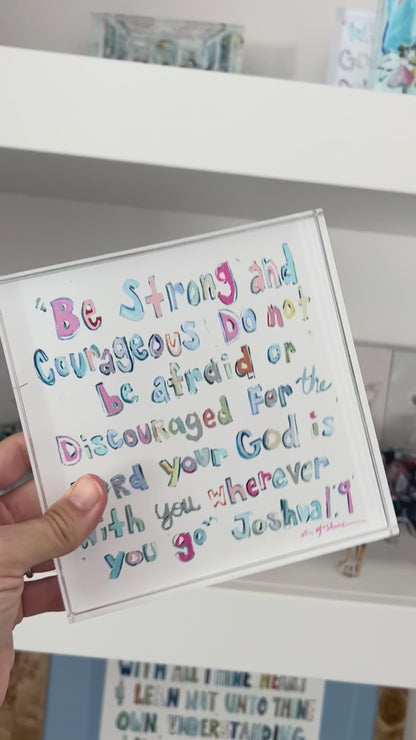 "Be Strong and
Courageous Do not
be afraid or
Discouraged For the
Lord your God is
with you wherever
you go" Joshua 1:9
WITH ALL THINE HEART
& LEAN NOT UNTO THINE
OWN UNDERSTANDING